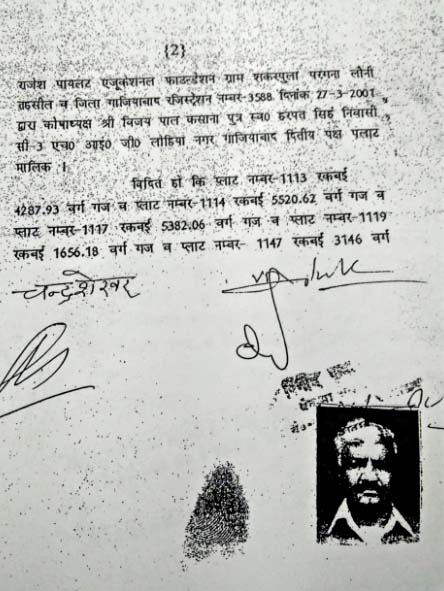 {2}
राजेश पायलट एजुकेशनल फाउन्डेशन ग्राम शकरपुला परगना लोनी
तहसील व जिला गाजियाबाद रजिस्ट्रेशन नम्बर-3588 दिनांक 27-3-2001
द्वारा कोषाध्यक्ष श्री विजय पाल कसाना पुत्र स्व0 हरपत सिंह निवासी
सी-3 एच0 आई0 जी0 लोहिया नगर गाजियाबाद दितीय पक्ष पलाट
मालिक ।
विदित हो कि प्लाट नम्बर-1113 रकबई
4287.93 वर्ग गज व प्लाट नम्बर-1114 रकबई 5520.62 वर्ग गज व
प्लाट नम्बर-1117 रकबई 5382.06 वर्ग गज व प्लाट नम्बर-1119
रकबई 1656.18 वर्ग गज व प्लाट नम्बर- 1147 रकबई 3146 वर्ग
चन्द्रशेखर